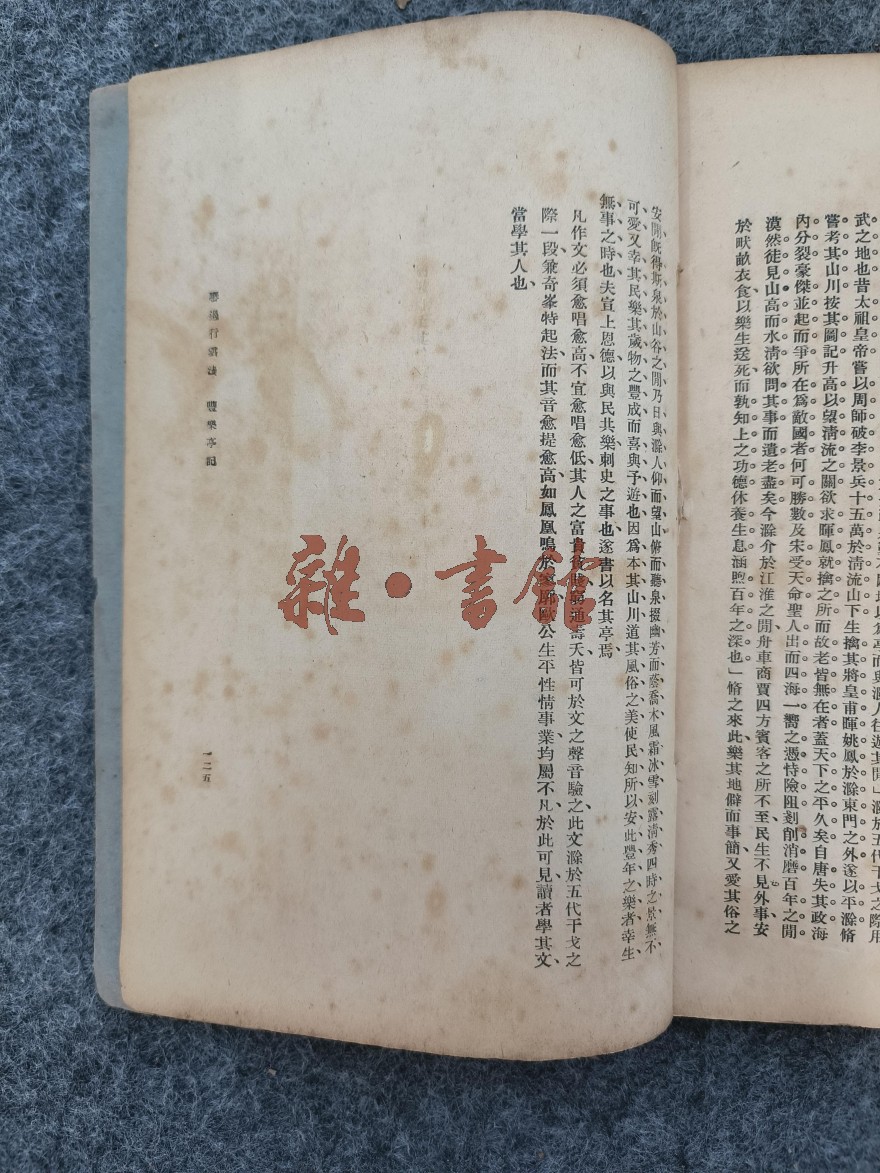 武之地也昔太祖皇帝嘗以周師破李景兵十五萬於淸流山下生擒其將皇甫暉姚鳳於滁東門之外遂以平滁脩
嘗考其山川按其圖記升高以望淸流之關欲求暉鳳就擒之所而故老皆無在者蓋天下之平久矣自唐失其政海
內分裂豪傑並起而爭所在爲敵國者何可勝數及宋受天命聖人出而四海一嚮之憑恃險阻剗削消磨百年之閒
漠然徒見山高而水淸欲問其事而遺老盡矣今滁介於江淮之閒舟車商賈四方賓客之所不至民生不見外事安
於畎畝衣食以樂生送死而孰知上之功德休養生息涵煦百年之深也」脩之來此樂其地僻而事簡又愛其俗之
安閒旣得斯泉於山谷之閒乃日與滁人仰而望山俯而聽泉掇幽芳而蔭喬木風霜冰雪刻露淸秀四時之景無不
可愛又幸其民樂其歲物之豐成而喜與予遊也因爲本其山川道其風俗之美使民知所以安此豐年之樂者幸生
無事之時也夫宣上恩德以與民共樂刺史之事也遂書以名其亭焉
凡作文必須愈唱愈高不宜愈唱愈低其人之富貴貧賤窮通壽夭皆可於文之聲音驗之此文滁於五代干戈之
際一段兼奇峯特起法而其音愈提愈高如鳳凰鳴於 歐公生平性情事業均屬不凡於此可見讀者學其文
當學其人也
豐樂亭記
一二五
雜·書館